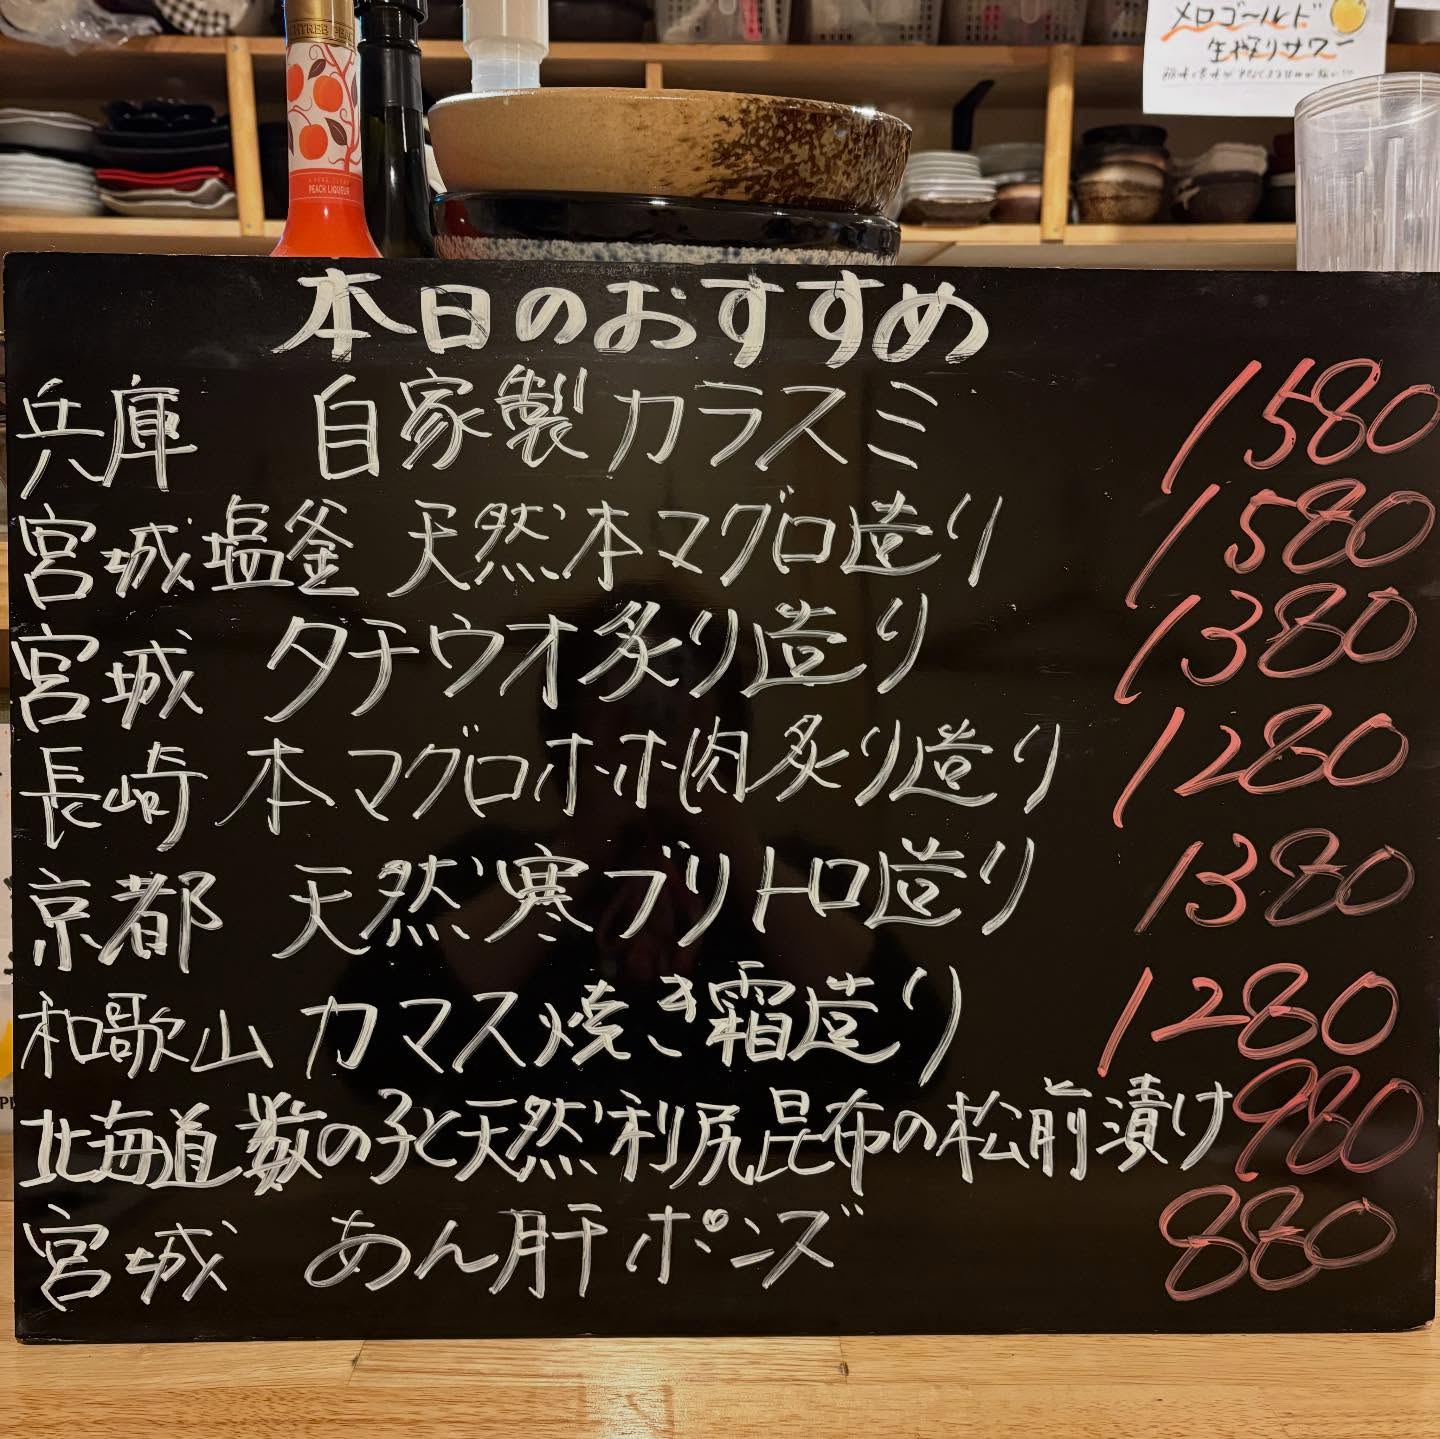 メロゴールド
生搾りサワー
PEACH LIQUEUR
本日のおすすめ
兵庫 自家製カラスミ 1580
宮城塩釜 天然本マグロ造り 1580
宮城 タチウオ炙り造り 1380
長崎 本マグロホホ肉炙り造り 1280
京都 天然寒ブリトロ造り 1380
和歌山 カマス焼き霜造り 1280
北海道 数の子と天然利尻昆布の松前漬け 980
宮城 あん肝ポンズ 880